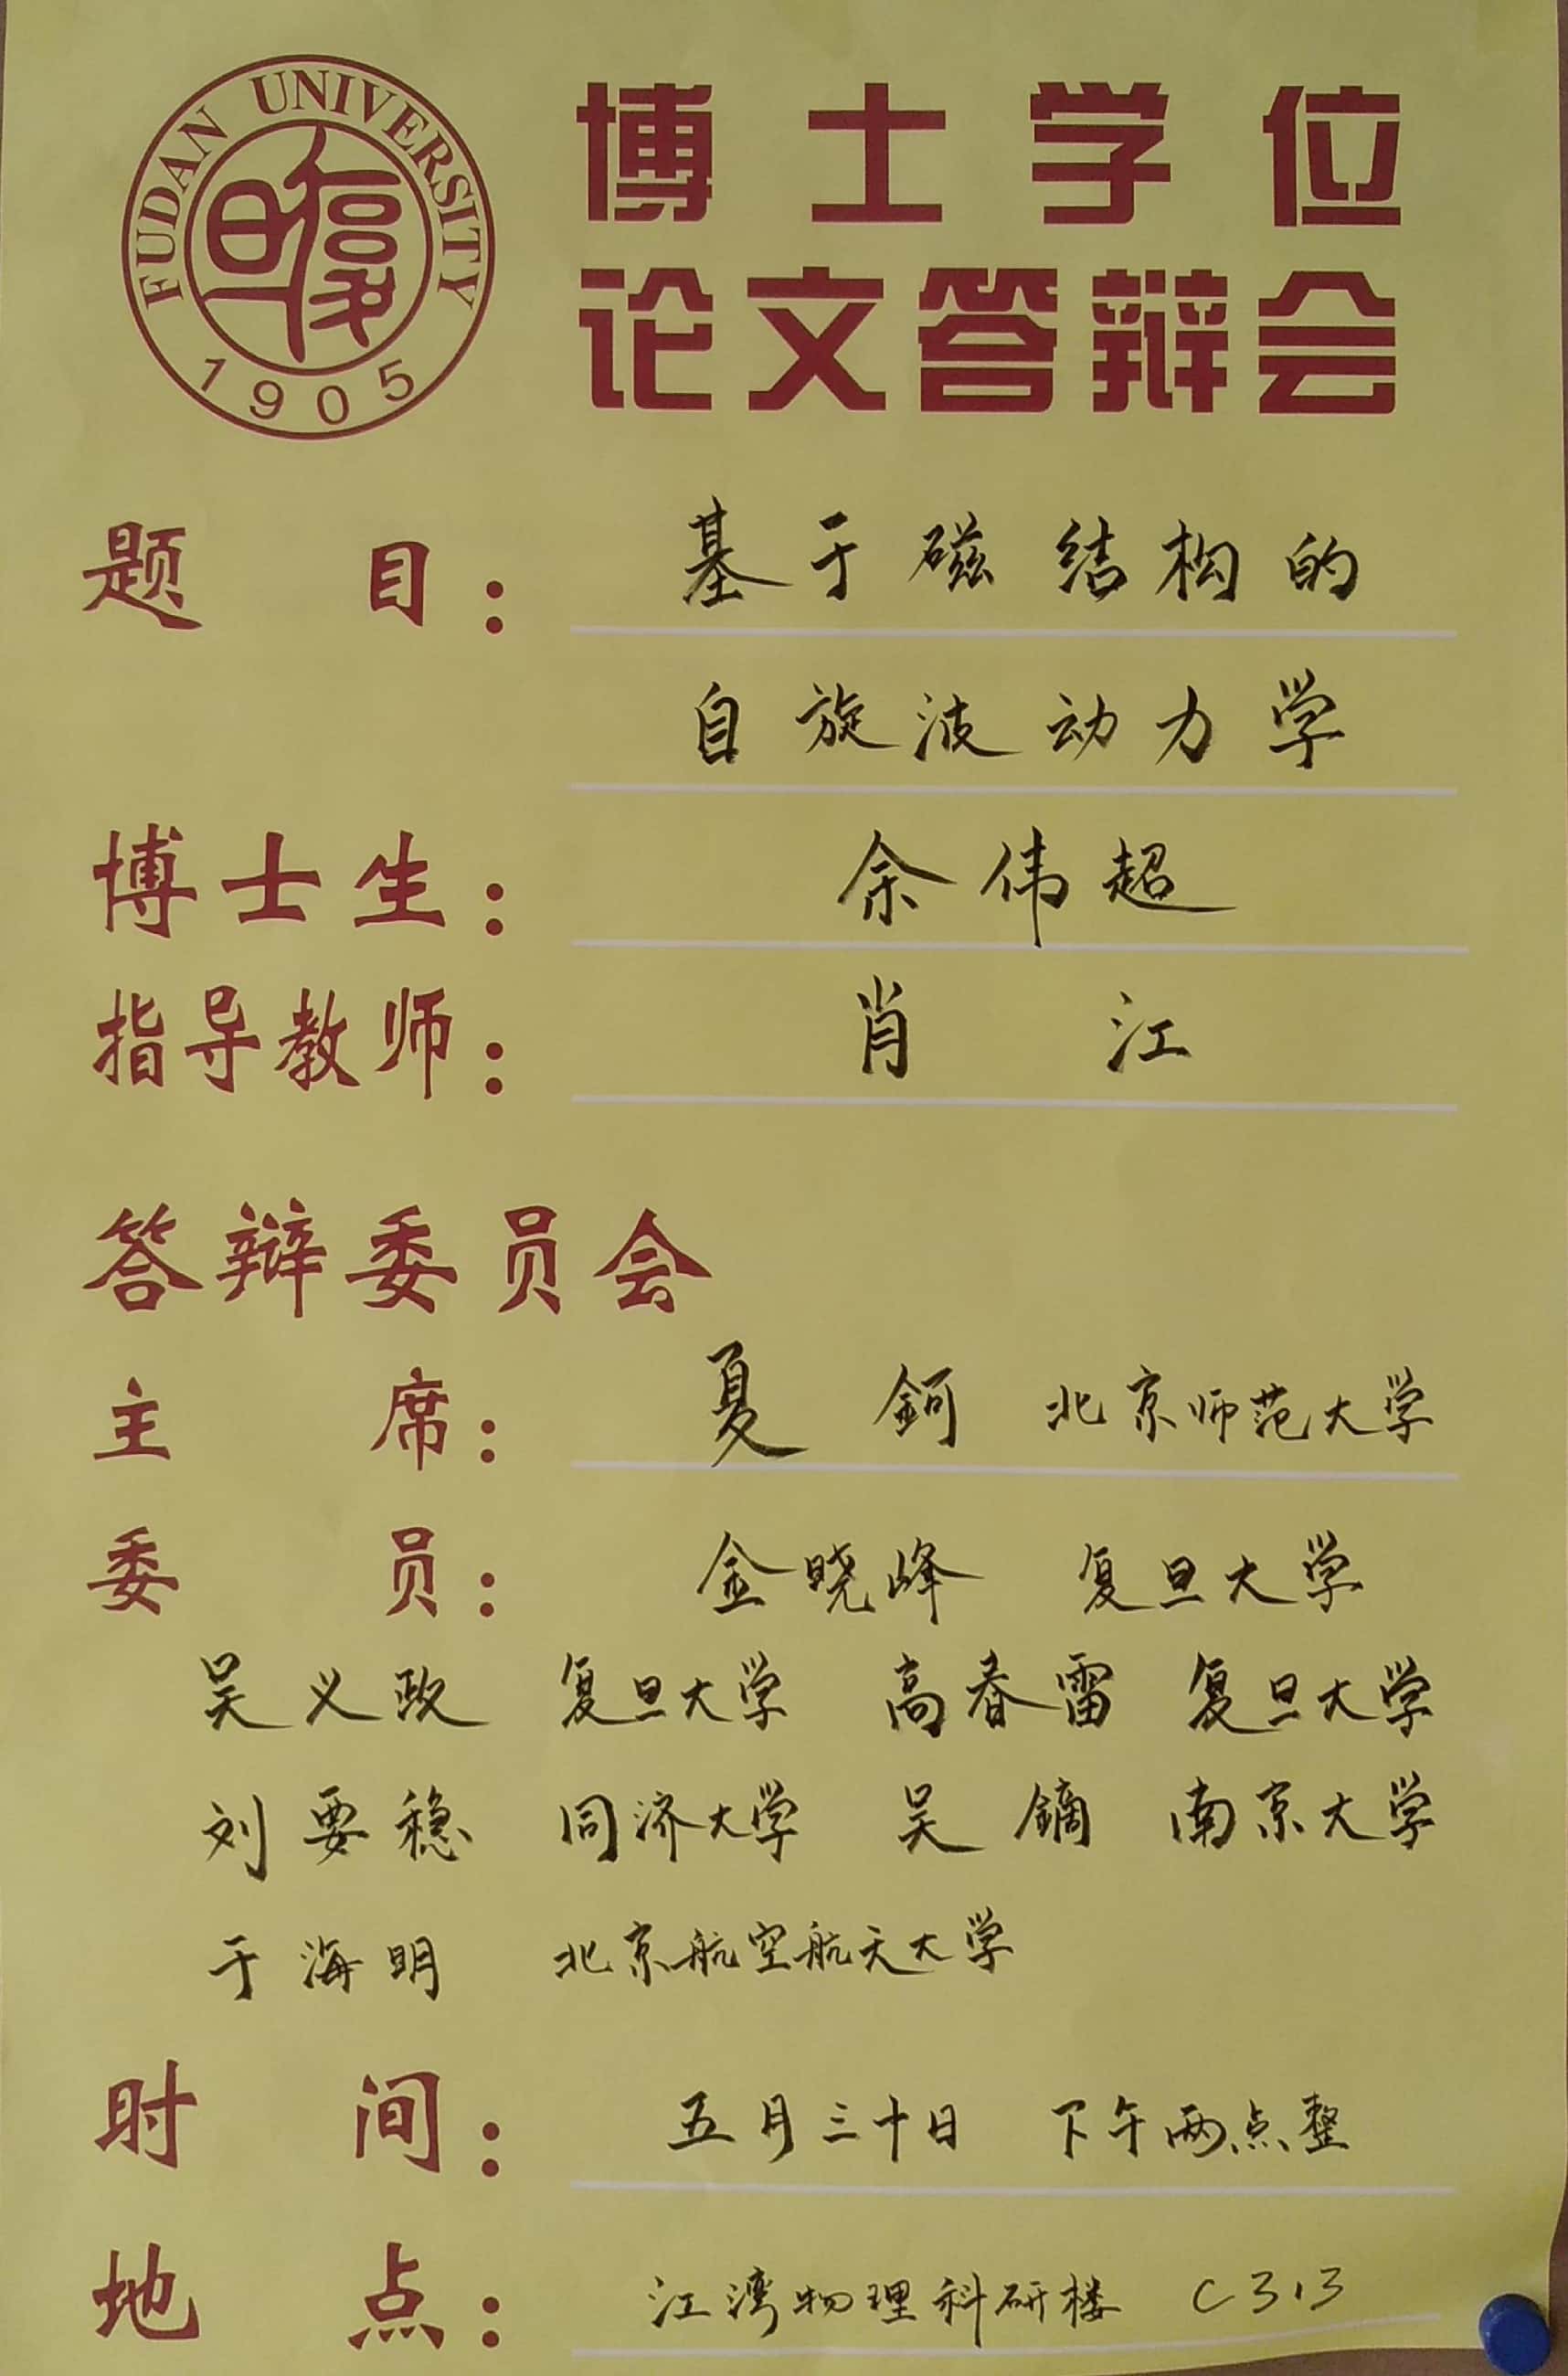 FUDAN UNIVERSITY
1905
博士学位
论文答辩会
题目：基于磁结构的
自旋波动力学
博士生：余伟超
指导教师：肖江
答辩委员会
主席：夏钶 北京师范大学
委员：金晓峰 复旦大学
吴义政 复旦大学 高春雷 复旦大学
刘要稳 同济大学 吴镝 南京大学
于海明 北京航空航天大学
时间：五月三十日 下午两点整
地点：江湾物理科研楼 C313